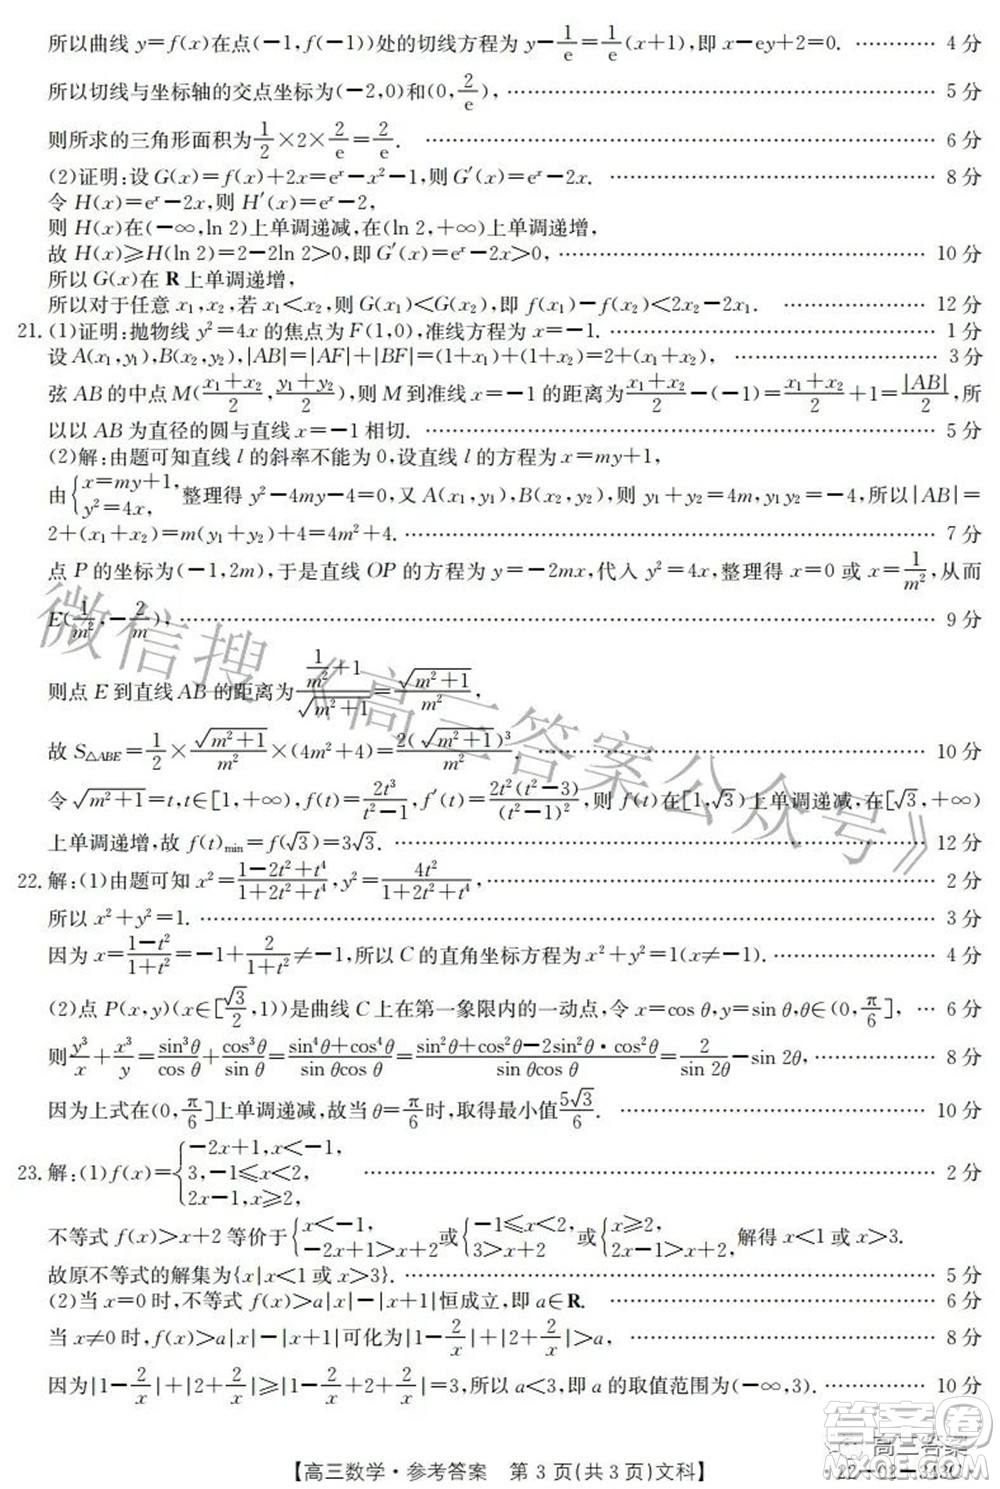 所以曲线 y=f(x)在点(-1,f(-1))处的切线方程为 y-1/e=1/e(x+1),即 x-ey+2=0. ………… 4 分
所以切线与坐标轴的交点坐标为(-2,0)和(0,2/e), ………… 5 分
则所求的三角形面积为1/2×2×2/e=2/e. ………… 6 分
(2)证明:设 G(x)=f(x)+2x=eˣ-x²-1,则 G′(x)=eˣ-2x. ………… 8 分
令 H(x)=eˣ-2x,则 H′(x)=eˣ-2,
则 H(x)在(-∞,ln 2)上单调递减,在(ln 2,+∞)上单调递增,
故 H(x)≥H(ln 2)=2-2ln 2>0,即 G′(x)=eˣ-2x>0, ………… 10 分
所以 G(x)在 R 上单调递增,
所以对于任意 x₁,x₂,若 x₁<x₂,则 G(x₁)<G(x₂),即 f(x₁)-f(x₂)<2x₂-2x₁. ………… 12 分
21.(1)证明:抛物线 y²=4x 的焦点为 F(1,0),准线方程为 x=-1. ………… 1 分
设 A(x₁,y₁),B(x₂,y₂),|AB|=|AF|+|BF|=(1+x₁)+(1+x₂)=2+(x₁+x₂), ………… 3 分
弦 AB 的中点 M((x₁+x₂)/2,(y₁+y₂)/2),则 M 到准线 x=-1 的距离为(x₁+x₂)/2-(-1)=(x₁+x₂)/2+1=|AB|/2,所
以以 AB 为直径的圆与直线 x=-1 相切. ………… 5 分
(2)解:由题可知直线 l 的斜率不能为 0,设直线 l 的方程为 x=my+1,
由{x=my+1, y²=4x, 整理得 y²-4my-4=0,又 A(x₁,y₁),B(x₂,y₂),则 y₁+y₂=4m,y₁y₂=-4,所以|AB|=
2+(x₁+x₂)=m(y₁+y₂)+4=4m²+4. ………… 7 分
点 P 的坐标为(-1,2m),于是直线 OP 的方程为 y=-2mx,代入 y²=4x,整理得 x=0 或 x=1/m²,从而
E(1/m²,-2/m), ………… 9 分
则点 E 到直线 AB 的距离为(1/m²+1)/√(m²+1)=√(m²+1)/m²,
故 S△ABE=1/2×√(m²+1)/m²×(4m²+4)=2(√(m²+1))³/m². ………… 10 分
令√(m²+1)=t,t∈[1,+∞),f(t)=2t³/(t²-1),f′(t)=2t²(t²-3)/(t²-1)²,则 f(t)在[1,√3)上单调递减,在[√3,+∞)
上单调递增,故 f(t)min=f(√3)=3√3. ………… 12 分
22.解:(1)由题可知 x²=(1-2t²+t⁴)/(1+2t²+t⁴),y²=4t²/(1+2t²+t⁴), ………… 2 分
所以 x²+y²=1. ………… 3 分
因为 x=(1-t²)/(1+t²)=-1+2/(1+t²)≠-1,所以 C 的直角坐标方程为 x²+y²=1(x≠-1). ………… 4 分
(2)点 P(x,y)(x∈[√3/2,1))是曲线 C 上在第一象限内的一动点,令 x=cos θ,y=sin θ,θ∈(0,π/6], … 6 分
则y³/x+x³/y=sin³θ/cos θ+cos³θ/sin θ=(sin⁴θ+cos⁴θ)/(sin θcos θ)=(sin²θ+cos²θ-2sin²θ·cos²θ)/(sin θcos θ)=2/sin 2θ-sin 2θ, ………… 8 分
因为上式在(0,π/6]上单调递减,故当 θ=π/6时,取得最小值5√3/6. ………… 10 分
23.解:(1)f(x)={-2x+1,x<-1, 3,-1≤x<2, 2x-1,x≥2, ………… 2 分
不等式 f(x)>x+2 等价于{x<-1, -2x+1>x+2 或{-1≤x<2, 3>x+2 或{x≥2, 2x-1>x+2, 解得 x<1 或 x>3.
故原不等式的解集为{x|x<1 或 x>3}. ………… 5 分
(2)当 x=0 时,不等式 f(x)>a|x|-|x+1|恒成立,即 a∈R. ………… 6 分
当 x≠0 时,f(x)>a|x|-|x+1|可化为|1-2/x|+|2+2/x|>a, ………… 8 分
因为|1-2/x|+|2+2/x|≥|1-2/x+2+2/x|=3,所以 a<3,即 a 的取值范围为(-∞,3). ………… 10 分
【高三数学·参考答案 第 3 页(共 3 页)文科】
·22-02-343C·
微信搜《高三答案公众号》
高三答案
答案圈